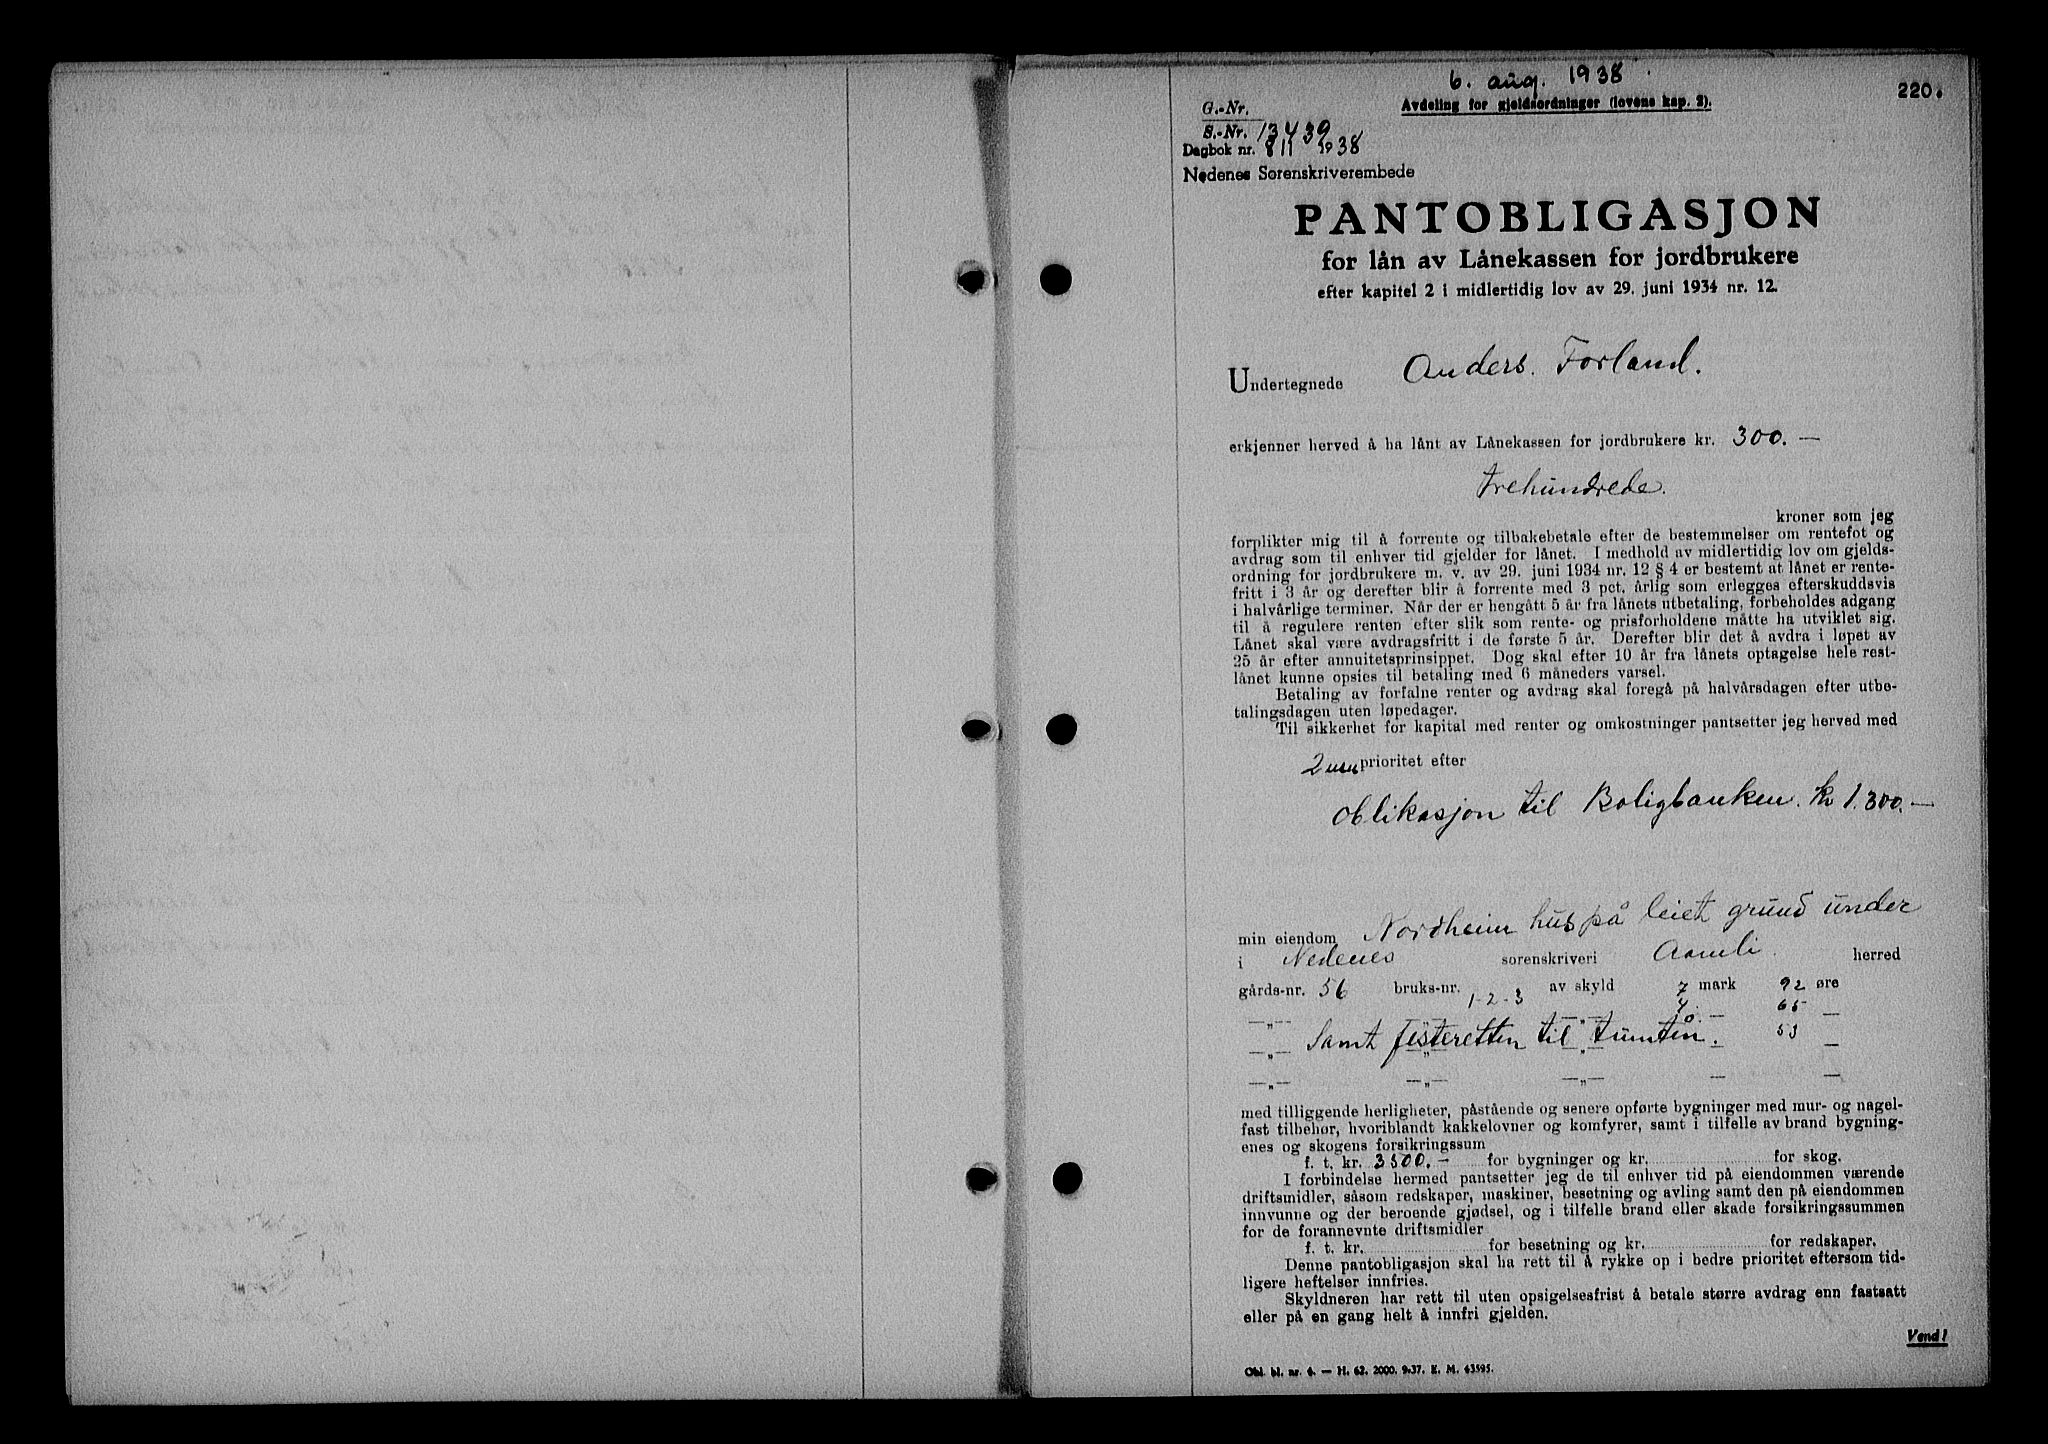 6. aug. 1938
Avdeling for gjeldsordninger (lovens kap. 2).
220.
G.-Nr.
S.-Nr. 13439
Dagbok nr. 811 1938
Nedenes Sorenskriverembede
PANTOBLIGASJON
for lån av Lånekassen for jordbrukere
efter kapitel 2 i midlertidig lov av 29. juni 1934 nr. 12.
Undertegnede Anders. Forland.
erkjenner herved å ha lånt av Lånekassen for jordbrukere kr. 300. —
trehundrede.
kroner som jeg
forplikter mig til å forrente og tilbakebetale efter de bestemmelser om rentefot og
avdrag som til enhver tid gjelder for lånet. I medhold av midlertidig lov om gjelds-
ordning for jordbrukere m. v. av 29. juni 1934 nr. 12 § 4 er bestemt at lånet er rente-
fritt i 3 år og derefter blir å forrente med 3 pct. årlig som erlegges efterskuddsvis
i halvårlige terminer. Når der er hengått 5 år fra lånets utbetaling, forbeholdes adgang
til å regulere renten efter slik som rente- og prisforholdene måtte ha utviklet sig.
Lånet skal være avdragsfritt i de første 5 år. Derefter blir det å avdra i løpet av
25 år efter annuitetsprinsippet. Dog skal efter 10 år fra lånets optagelse hele rest-
lånet kunne opsies til betaling med 6 måneders varsel.
Betaling av forfalne renter og avdrag skal foregå på halvårsdagen efter utbe-
talingsdagen uten løpedager.
Til sikkerhet for kapital med renter og omkostninger pantsetter jeg herved med
2nen prioritet efter
oblikasjon til Boligbanken. kr 1.300. —
min eiendom Nordheim hus på leiet grund under
i Nedenes sorenskriveri Aamli herred
gårds-nr. 56 bruks-nr. 1-2-3 av skyld 7 mark 92 øre
—„— 4. — 65 —
—„— Samt festeretten til tumten. 53 —
—„— —„— —„— — —
med tilliggende herligheter, påstående og senere opførte bygninger med mur- og nagel-
fast tilbehør, hvoriblandt kakkelovner og komfyrer, samt i tilfelle av brand bygning-
enes og skogens forsikringssum
f. t. kr. 3500.- for bygninger og kr. for skog.
I forbindelse hermed pantsetter jeg de til enhver tid på eiendommen værende
driftsmidler, såsom redskaper, maskiner, besetning og avling samt den på eiendommen
innvunne og der beroende gjødsel, og i tilfelle brand eller skade forsikringssummen
for de forannevnte driftsmidler
f. t. kr. for besetning og kr. for redskaper.
Denne pantobligasjon skal ha rett til å rykke op i bedre prioritet eftersom tid-
ligere heftelser innfries.
Skyldneren har rett til uten opsigelsesfrist å betale større avdrag enn fastsatt
eller på en gang helt å innfri gjelden.
Vend!
Obl. bl. nr. 4. — H. 62. 2000. 9-37. E. M. 63595.